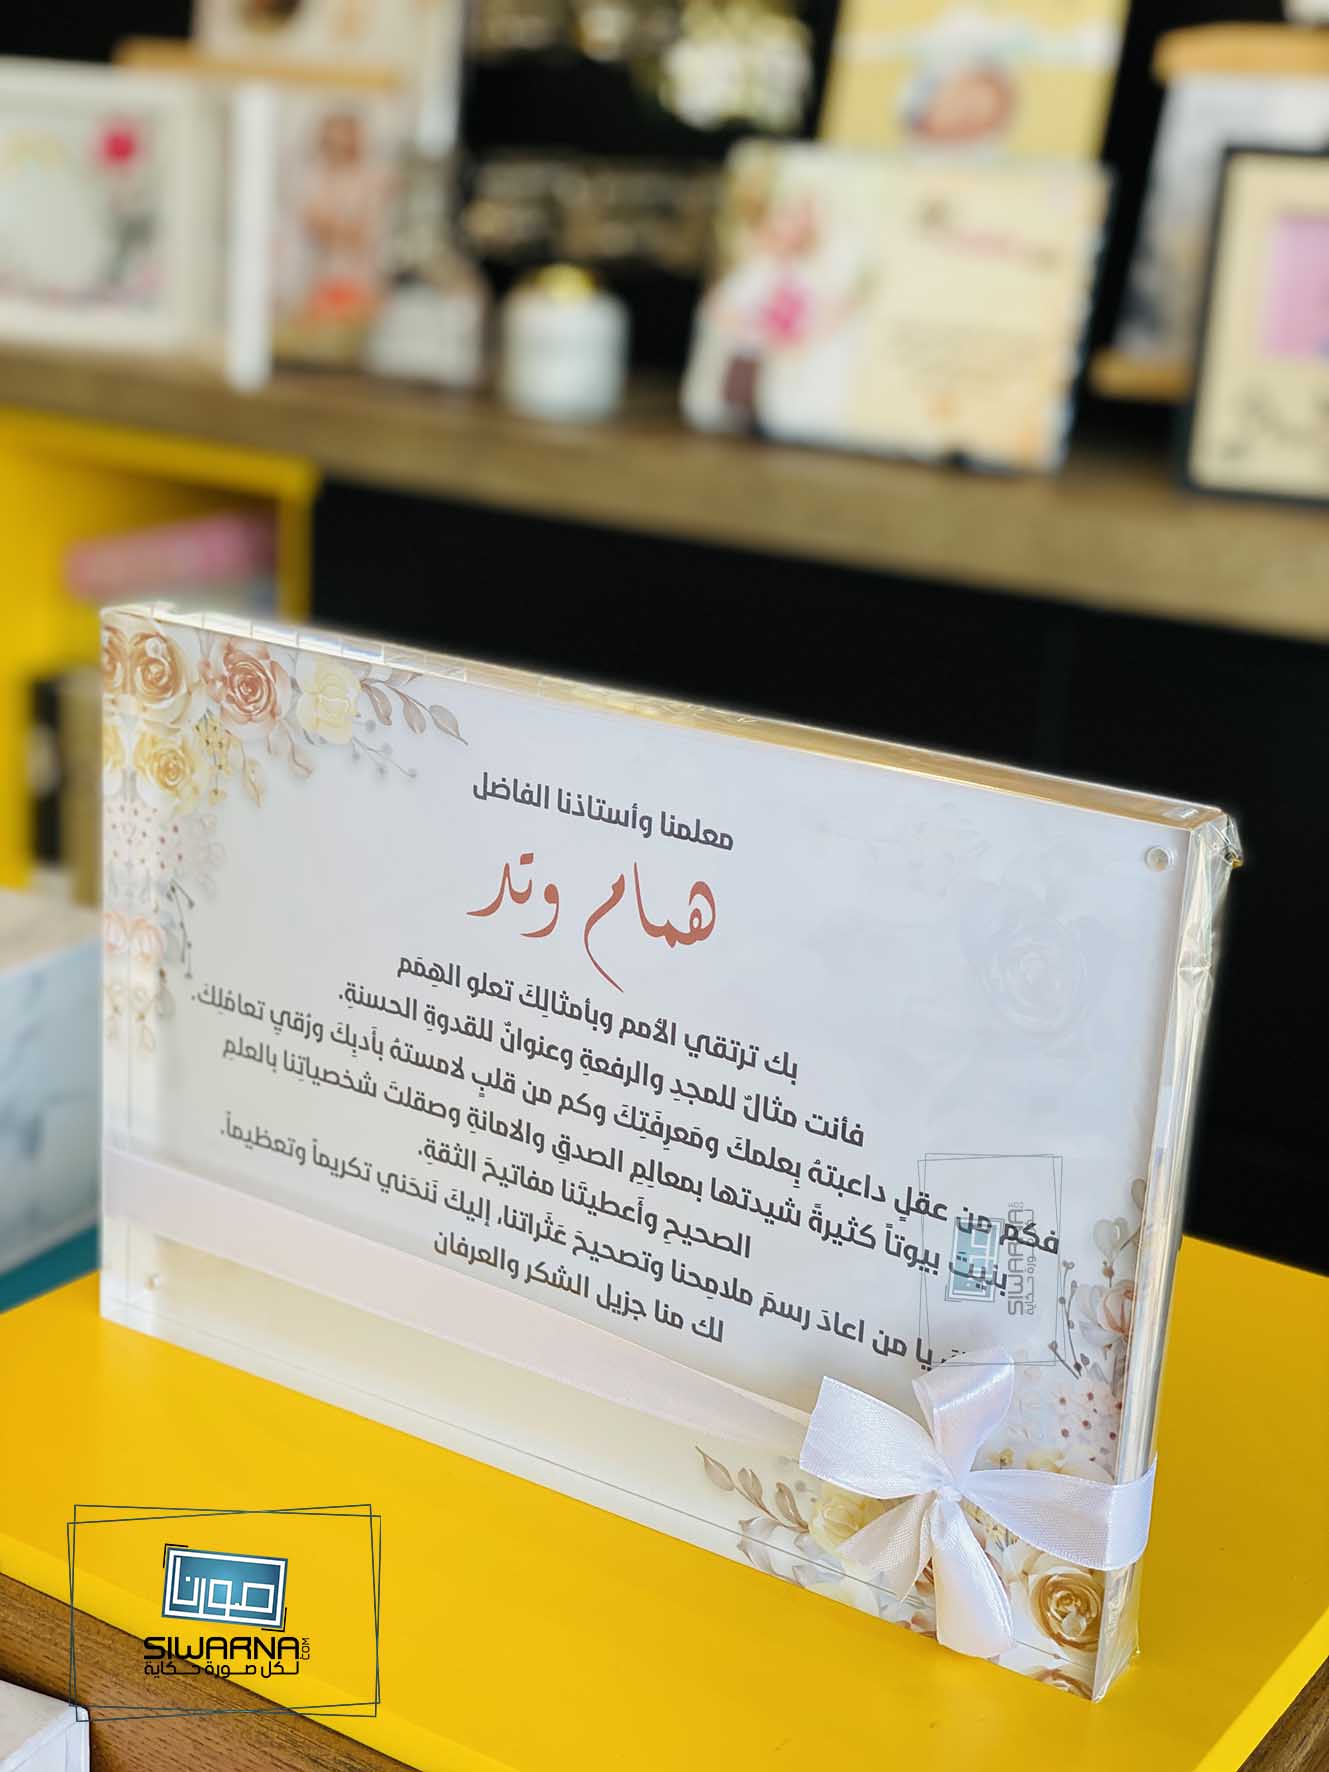 معلمنا وأستاذنا الفاضل
همام وتد
بك ترتقي الأمم وبأمثالِكَ تعلو الهِمَم
فأنت مثالٌ للمجدِ والرفعةِ وعنوانٌ للقدوةِ الحسنةِ.
فكم من عقلٍ داعبتهُ بِعلمكَ ومَعرِفَتِكَ وكم من قلبٍ لامستهُ بأَدبِكَ ورُقيِ تعامُلِكَ.
بنيت بيوتاً كثيرةً شيدتها بمعالِمِ الصدقِ والامانةِ وصقلتَ شخصياتِنا بالعلمِ
الصحيحِ وأَعطيتَنا مفاتيحَ الثقةِ.
يا من اعادَ رسمَ ملامِحنا وتصحيحَ عَثَراتنا، إليكَ نَنحَني تكريماً وتعظيماً.
لك منا جزيل الشكر والعرفان
صورنا
SIWARNA.COM
لكل صورة حكاية
صورنا
SIWARNA.COM
لكل صورة حكاية